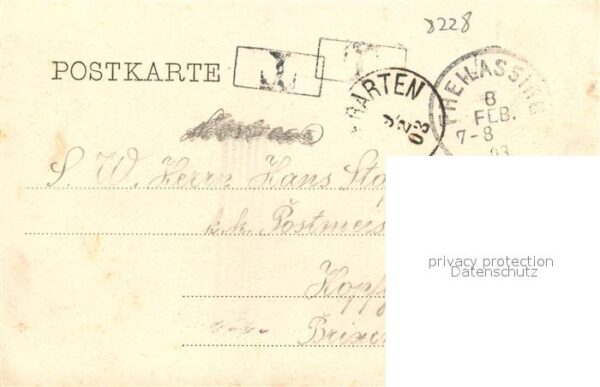 8228
POSTKARTE
GARTEN
2
03
FREILASSING
8
FEB.
7-8
03
S. W. Herrn Hans
k. k. Postmeis
Kopf
Brixen
privacy protection
Datenschutz